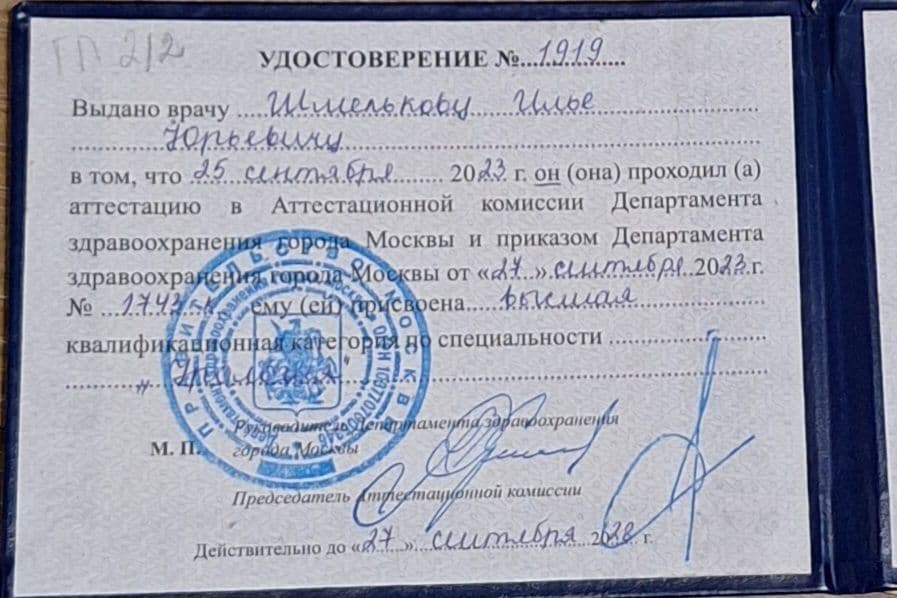 ГП 212
УДОСТОВЕРЕНИЕ № 1919
Выдано врачу Шмелькову Илье
Юрьевичу
в том, что 25 сентября 2023 г. он (она) проходил (а)
аттестацию в Аттестационной комиссии Департамента
здравоохранения города Москвы и приказом Департамента
здравоохранения города Москвы от «27» сентября 2023 г.
№ 1743-к ему (ей) присвоена высшая
квалификационная категория по специальности
"Урология"
Руководитель Департамента здравоохранения
М. П. города Москвы
Председатель Аттестационной комиссии
Действительно до «27» сентября 2028 г.
ПРАВИТЕЛЬСТВО МОСКВЫ